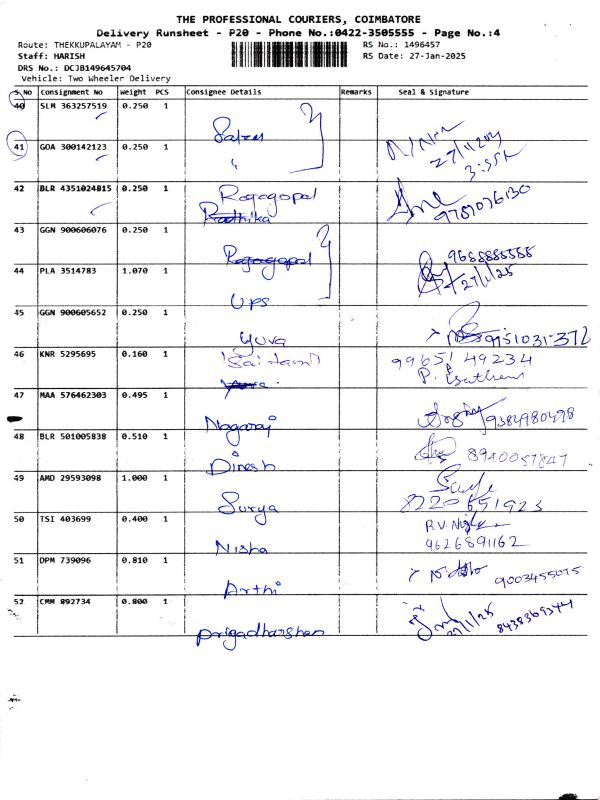 THE PROFESSIONAL COURIERS, COIMBATORE
Delivery Runsheet - P20 - Phone No.:0422-3505555 - Page No.:4
Route: THEKKUPALAYAM - P20
RS No.: 1496457
Staff: HARISH
RS Date: 27-Jan-2025
DRS No.: DCJB149645704
Vehicle: Two Wheeler Delivery
S.No Consignment No Weight PCS Consignee Details Remarks Seal & Signature
40 SLM 363257519 0.250 1
41 GOA 300142123 0.250 1
3:55
42 BLR 4351024815 0.250 1 Rajagopal
Radhika 9787076130
43 GGN 900606076 0.250 1
Rajagopal 9688885588
44 PLA 3514783 1.070 1 27/1/25
UPS
45 GGN 900605652 0.250 1
Yuva 9751031372
46 KNR 5295695 0.160 1 Sai tamil 99651 49234
Yuva
47 MAA 576462303 0.495 1
Nagaraj 9384980498
48 BLR 501005838 0.510 1
Dinesh 8940057847
49 AMD 29593098 1.000 1
Surya 8220651923
50 TSI 403699 0.400 1
Nisha 9626891162
51 DPM 739096 0.810 1
Arthi 9003455075
52 CMM 892734 0.800 1
Prigadharshan 27/1/25 8438369344